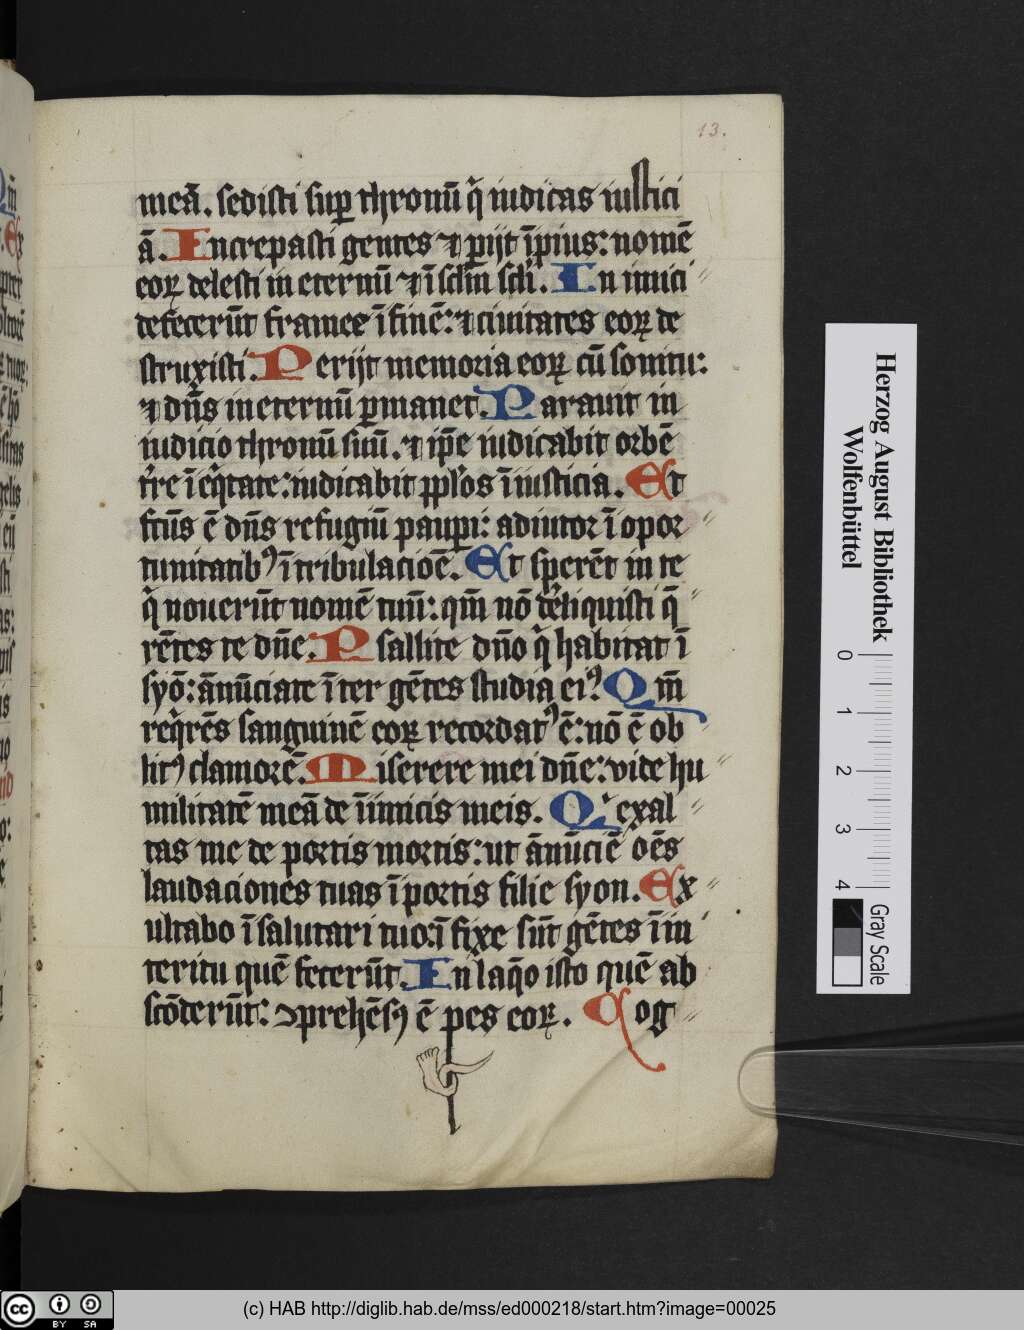 13.
meā. sedisti suꝑ thronū q̄ iudicas iustici
ā. Increpasti gentes ⁊ ꝑijt īpius: nomē
eoꝝ delesti in eternū ⁊ ī sclm̄ scli̅. In imici
defecerūt framee ī finē: ⁊ ciuitates eoꝝ de
struxisti. Perijt memoria eoꝝ cū sonitu:
⁊ dn̄s in eternū ꝑmanet. Parauit in
iudicio thronū suū. ⁊ ip̄e iudicabit orbē
tr̄e ī eq̄tate: iudicabit ppl̓os ī iusticia. Et
fcūs ē dn̄s refugiū pauꝑi: adiutor ī opor
tunitatibꝰ ī tribulacioē. Et sperēt in te
q̄ nouerūt nomē tuū: qm̄ nō de̓liquisti q̄
rētes te dn̄e. Psallite dn̄o q̄ habitat ī
syō: ānūciate īter gētes studia eiꝰ. Qm̄
req̄rēs sanguinē eoꝝ recordatꝰ ē: nō ē ob
litꝰ clamorē. Miserere mei dn̄e: vide hu
militatē meā de īimicis meis. Qi exal
tas me de portis mortis: ut ānūciē oēs
laudaciones tuas ī portis filie syon. Ex
ultabo ī salutari tuo: ī fixe sūt gētes ī in
teritu quē fecerūt. In laq̄o isto quē ab
scōderūt: ꝯprehēsꝰ ē pes eoꝝ. Cog
Herzog August Bibliothek
Wolfenbüttel
0 1 2 3 4
Gray Scale
cc BY SA
(c) HAB http://diglib.hab.de/mss/ed000218/start.htm?image=00025